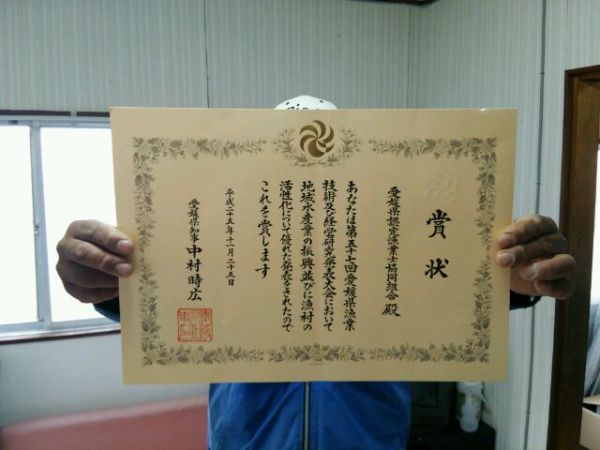 賞状
愛媛県認定漁業士協同組合 殿
あなたは第五十七回愛媛県漁業
技術及び経営研究発表大会において
地域水産業の振興並びに漁村の
活性化について優れた発表をされたので
これを賞します
平成二十五年十一月二十五日
愛媛県知事 中村時広